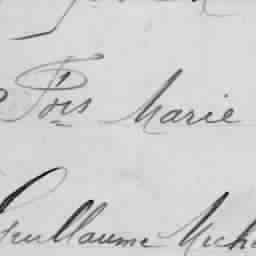 Fois Marie
Guillaume Mich